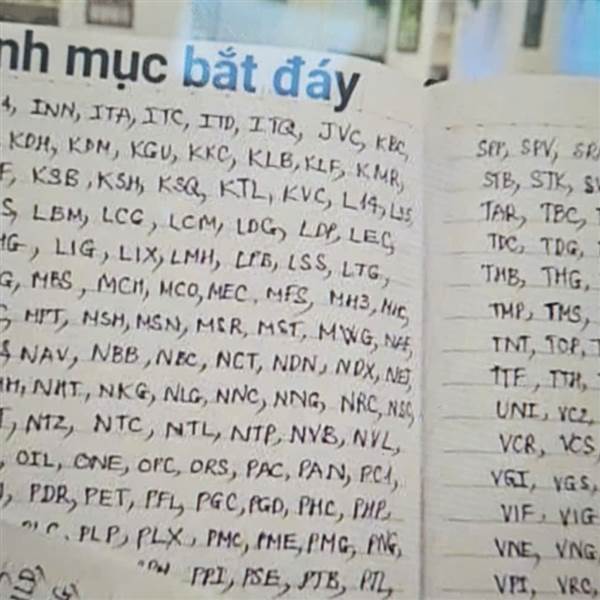 nh mục bắt đáy
INN, ITA, ITC, ITD, ITQ, JVC, KBC,
KDH, KDM, KGU, KKC, KLB, KLF, KMR,
KSB, KSH, KSQ, KTL, KVC, L14,
LBM, LCG, LCM, LDG, LDP, LEC,
LIG, LIX, LMH, LPB, LSS, LTG,
MBS, MCH, MCO, MEC, MFS, MH3,
MPT, MSH, MSN, MSR, MST, MWG,
NAV, NBB, NBC, NCT, NDN, NDX,
NHT, NKG, NLG, NNC, NNG, NRC,
NTZ, NTC, NTL, NTP, NVB, NVL,
OIL, ONE, OPC, ORS, PAC, PAN, PC1,
PDR, PET, PFL, PGC, PGD, PHC, PHP,
PLP, PLX, PMC, PME, PMG, PNG,
PPI, PSE, PTB, PTL,
SPP, SPV,
STB, STK,
TAR, TBC,
TDC, TDG,
THB, THG,
TMP, TMS,
TNT, TOP,
TTF, TTH,
UNI,
VCR, VCS,
VGI, VGS,
VIF, VIG
VNE, VNG,
VPI, VRC,